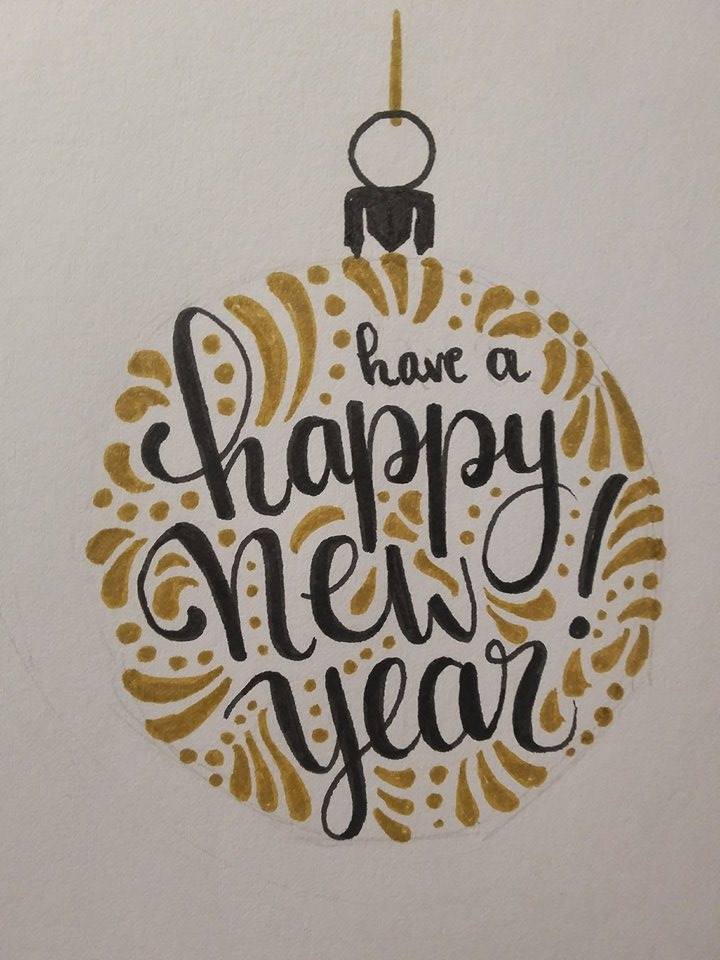 have a
happy
New
year!